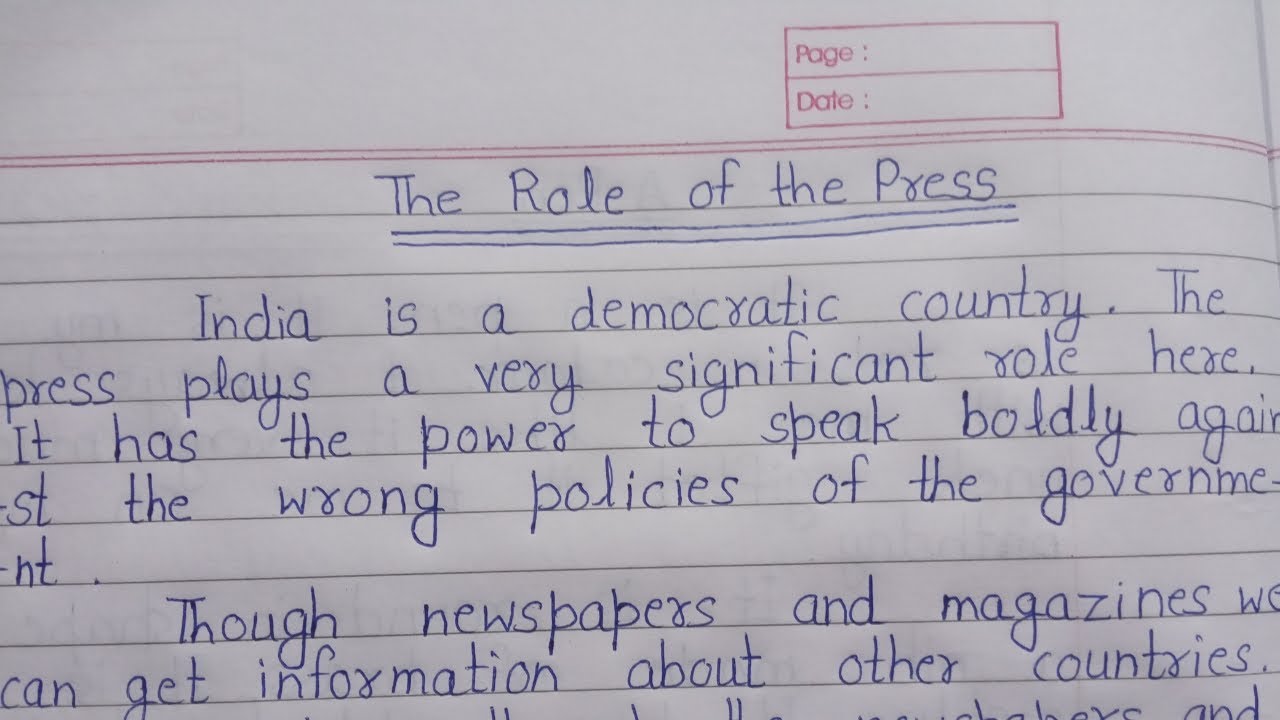 Page :
Date :
The Role of the Press
India is a democratic country. The
press plays a very significant role here.
It has the power to speak boldly again
-st the wrong policies of the governme-
-nt .
Though newspapers and magazines we
can get information about other countries.
newspapers and